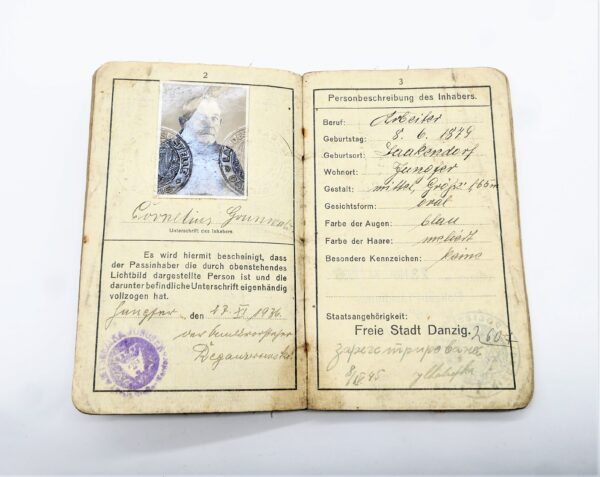 2
Cornelius Grunwald
Unterschrift des Inhabers.
Es wird hiermit bescheinigt, dass
der Passinhaber die durch obenstehendes
Lichtbild dargestellte Person ist und die
darunter befindliche Unterschrift eigenhändig
vollzogen hat.
Jungfer, den 17. XI. 1936
der Amtsvorsteher
3
Personbeschreibung des Inhabers.
Beruf: Arbeiter
Geburtstag: 8. 6. 1874
Geburtsort: Laakendorf
Wohnort: Jungfer
Gestalt: mittel, Größe 1,65m
Gesichtsform: oval
Farbe der Augen: blau
Farbe der Haare: meliert
Besondere Kennzeichen: keine
Staatsangehörigkeit:
Freie Stadt Danzig.